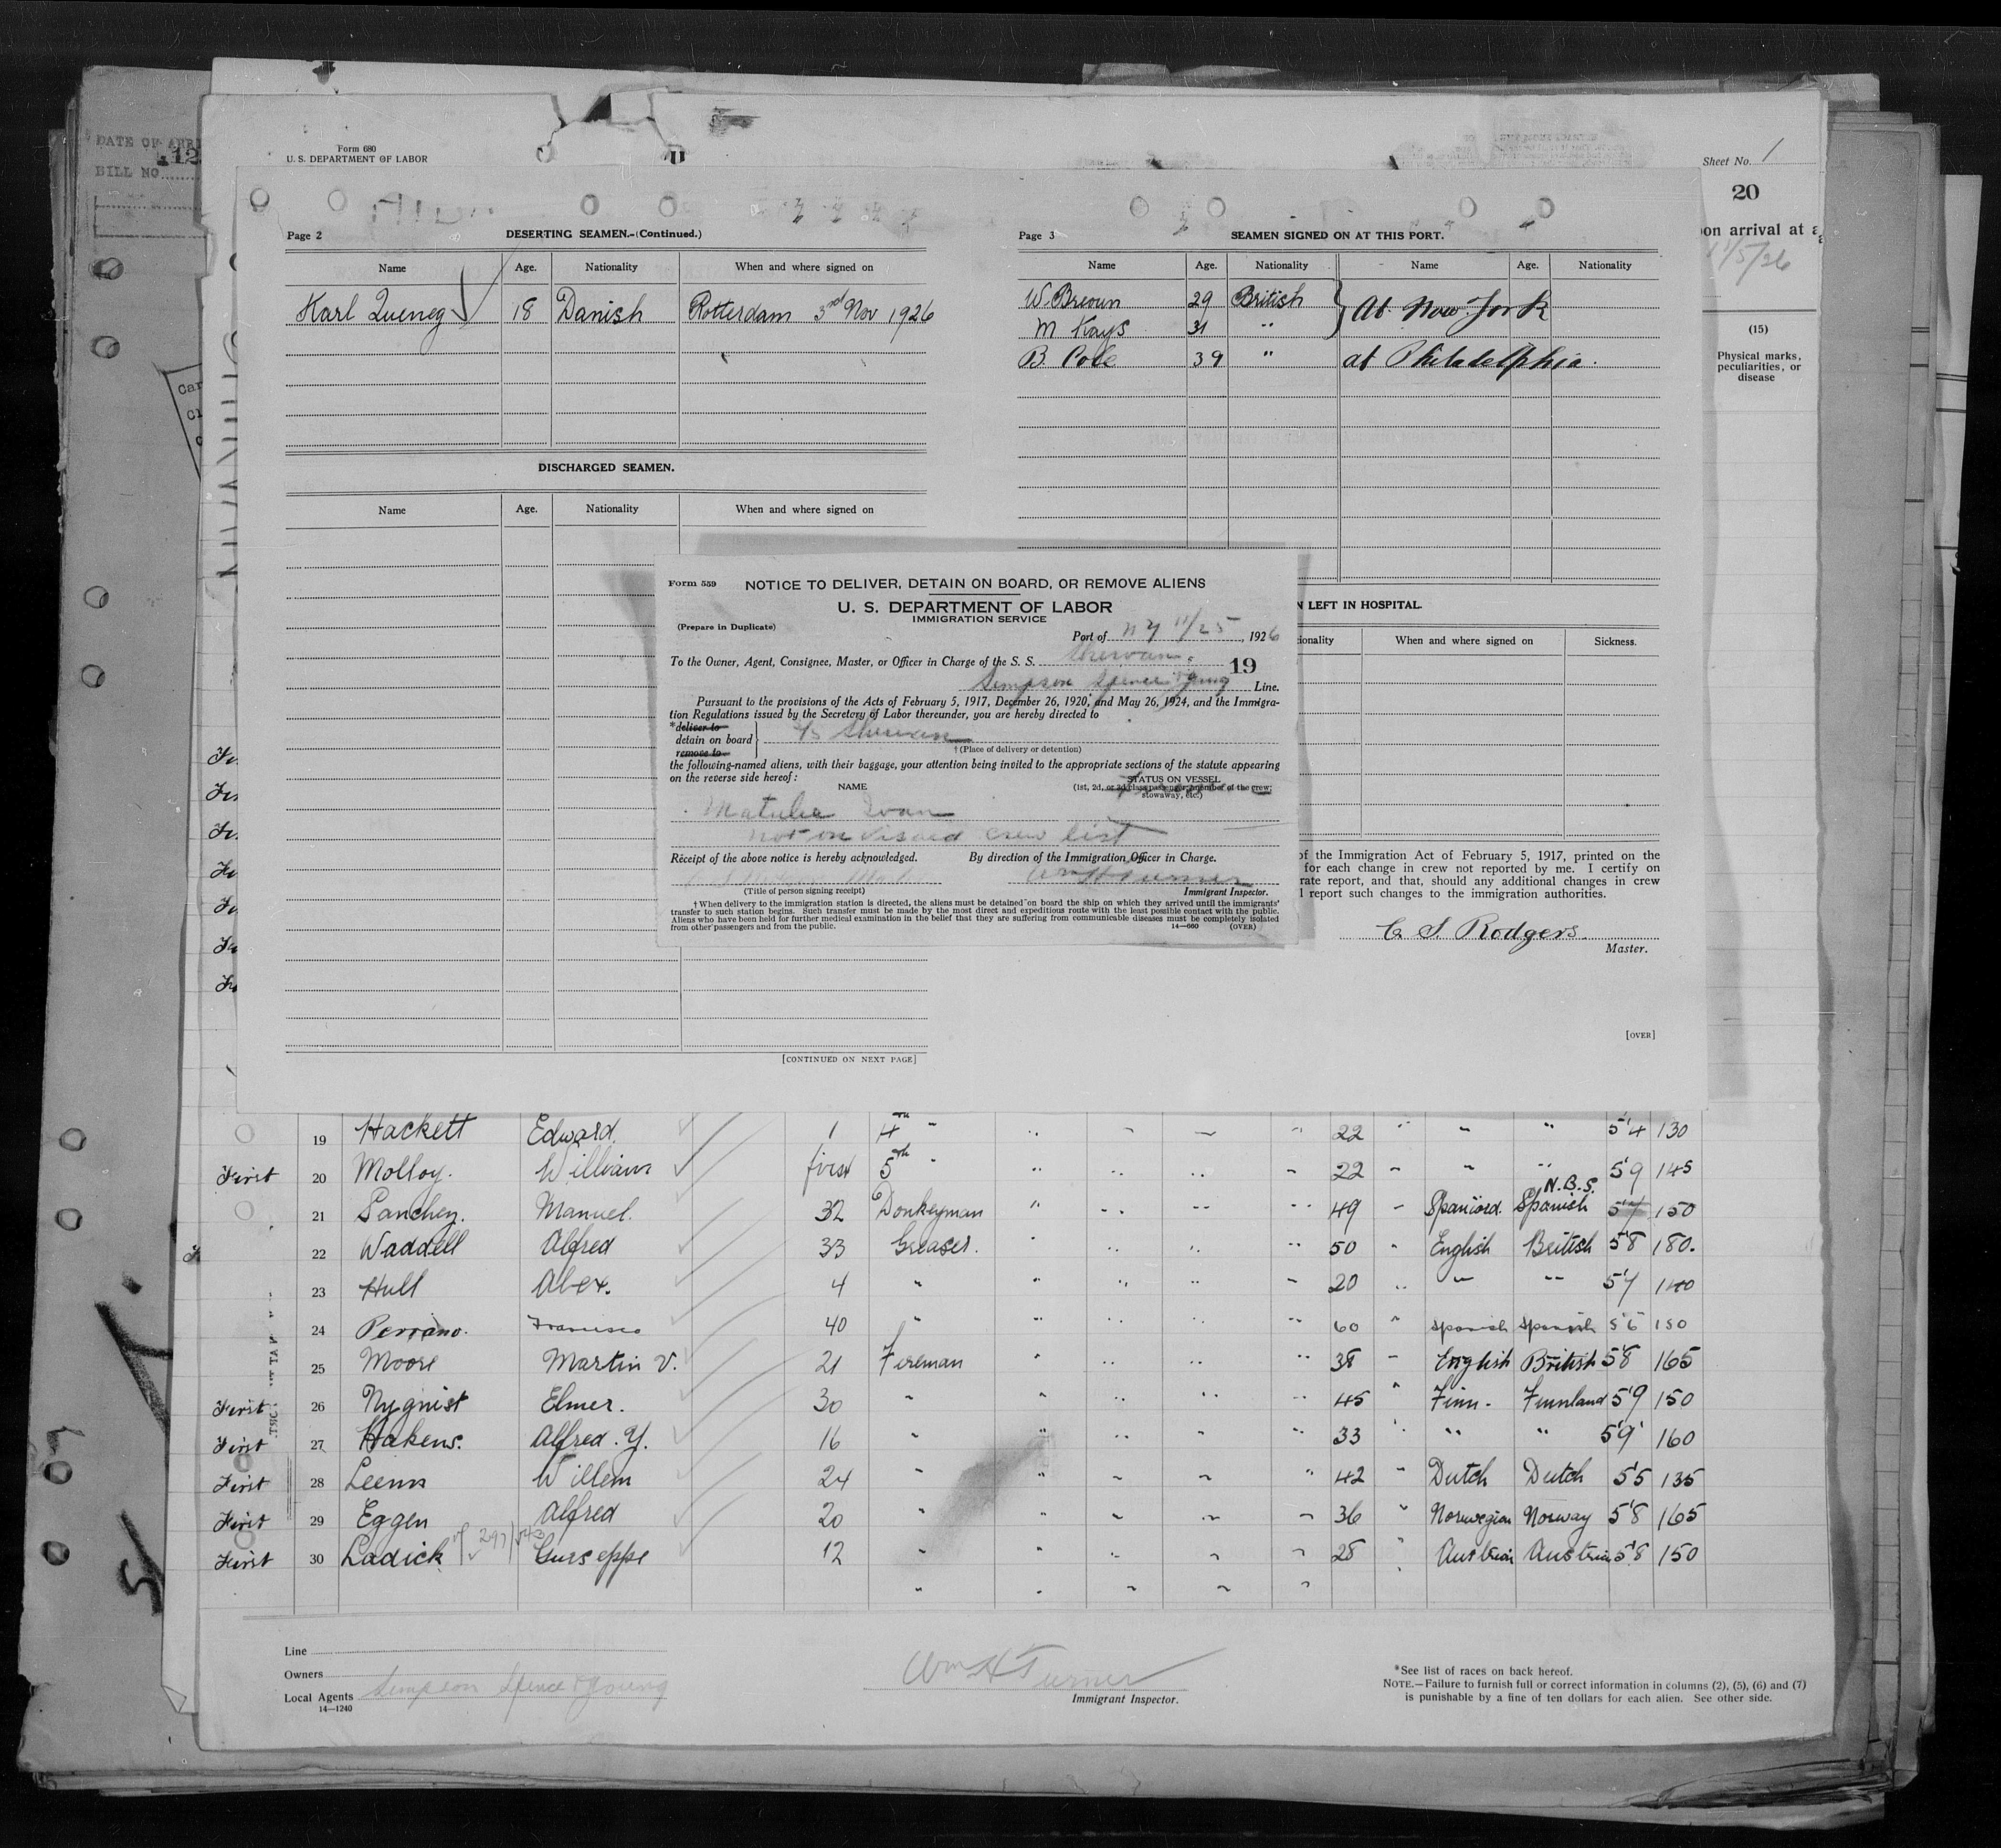 DATE OF ARR
BILL NO.
Form 680
U. S. DEPARTMENT OF LABOR
Sheet No. 1
20
on arrival at a
11/5/26
(15)
Physical marks, peculiarities, or disease
Page 2 DESERTING SEAMEN.-(Continued.)
Name Age. Nationality When and where signed on
Karl 18 Danish Rotterdam 3rd Nov 1926
DISCHARGED SEAMEN.
Name Age. Nationality When and where signed on
[CONTINUED ON NEXT PAGE]
Page 3 SEAMEN SIGNED ON AT THIS PORT.
Name Age. Nationality Name Age. Nationality
W. Brown 29 British } At New York
M Kays 31 "
B. Cole 39 " at Philadelphia.
N LEFT IN HOSPITAL.
ionality When and where signed on Sickness.
of the Immigration Act of February 5, 1917, printed on the
for each change in crew not reported by me. I certify on
rate report, and that, should any additional changes in crew
l report such changes to the immigration authorities.
S. Rodgers
Master.
[OVER]
Form 559 NOTICE TO DELIVER, DETAIN ON BOARD, OR REMOVE ALIENS
U. S. DEPARTMENT OF LABOR
IMMIGRATION SERVICE
(Prepare in Duplicate)
Port of N Y 11/25, 1926
To the Owner, Agent, Consignee, Master, or Officer in Charge of the S. S. Shirvan
19
Simpson Spence & Young Line.
Pursuant to the provisions of the Acts of February 5, 1917, December 26, 1920, and May 26, 1924, and the Immigra-
tion Regulations issued by the Secretary of Labor thereunder, you are hereby directed to
*deliver to
detain on board } S/S Shirvan
remove to
† (Place of delivery or detention)
the following-named aliens, with their baggage, your attention being invited to the appropriate sections of the statute appearing
on the reverse side hereof:
NAME STATUS ON VESSEL
(1st, 2d, or 3d class passenger; member of the crew;
stowaway, etc.)
Matulia Ivan
not on visaed crew list
Receipt of the above notice is hereby acknowledged. By direction of the Immigration Officer in Charge.
Wm H Turner
(Title of person signing receipt) Immigrant Inspector.
† When delivery to the immigration station is directed, the aliens must be detained on board the ship on which they arrived until the immigrants'
transfer to such station begins. Such transfer must be made by the most direct and expeditious route with the least possible contact with the public.
Aliens who have been held for further medical examination in the belief that they are suffering from communicable diseases must be completely isolated
from other passengers and from the public. 14—660 (OVER)
19 Hackett Edward. 1 4th " 22 " " " 5'4 130
First 20 Molloy. William first 5th " 22 " " " 5'9 145
N.B.S.
21 Sanchez. Manuel. 32 Donkeyman " 49 " Spaniard. Spanish 5'4 150
22 Waddell Alfred 33 Greaser. " 50 " English British 5'8 180.
23 Hull Alex. 4 " 20 " " " 5'7 140
24 Perrano. Francisco 40 " 60 " Spanish Spanish 5'6 150
25 Moore Martin V. 21 Fireman " 38 " English British 5'8 165
First 26 Nyqnist Elmer. 30 " 45 " Finn. Finnland 5'9 150
First 27 Hakens. Alfred. Y. 16 " 33 " " " 5'9 160
First 28 Leems Willem 24 " 42 " Dutch Dutch 5'5 135
First 29 Eggen Alfred 20 " 36 " Norwegian Norway 5'8 165
First 30 Ladick Guiseppe 12 " 28 " Austrian Austria 5'8 150
Line
Owners
Local Agents Simpson Spence & Young
14—1240
Wm H Turner
Immigrant Inspector.
*See list of races on back hereof.
NOTE.—Failure to furnish full or correct information in columns (2), (5), (6) and (7)
is punishable by a fine of ten dollars for each alien. See other side.